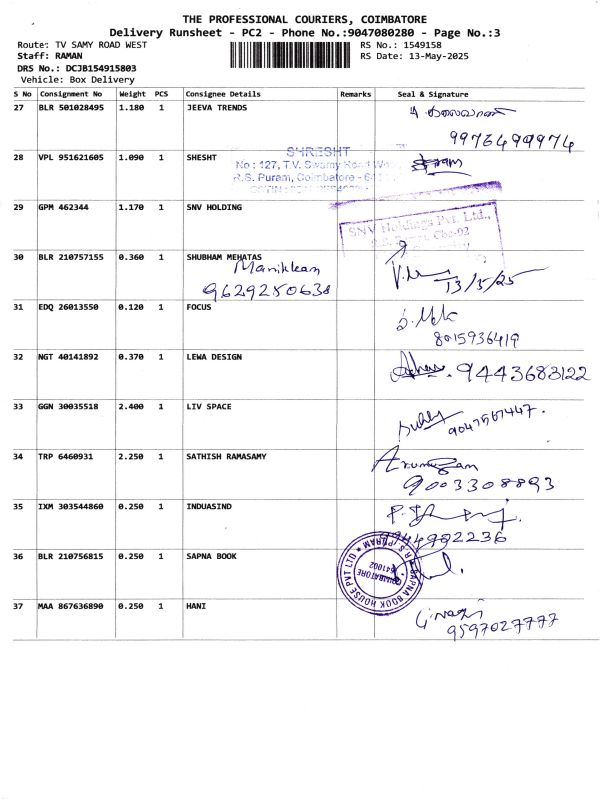 THE PROFESSIONAL COURIERS, COIMBATORE
Delivery Runsheet - PC2 - Phone No.:9047080280 - Page No.:3
Route: TV SAMY ROAD WEST RS No.: 1549158
Staff: RAMAN RS Date: 13-May-2025
DRS No.: DCJB154915803
Vehicle: Box Delivery
S No Consignment No Weight PCS Consignee Details Remarks Seal & Signature
27 BLR 501028495 1.180 1 JEEVA TRENDS
9976499974
28 VPL 951621605 1.090 1 SHESHT
SHRESHT
No : 127, T.V. Swamy Road
R.S. Puram, Coimbatore -
29 GPM 462344 1.170 1 SNV HOLDING
SNV Holdings Pvt. Ltd.,
30 BLR 210757155 0.360 1 SHUBHAM MEHATAS
Manikkan
9629250638
13/5/25
31 EDQ 26013550 0.120 1 FOCUS
8015936419
32 NGT 40141892 0.370 1 LEWA DESIGN
9443683122
33 GGN 30035518 2.400 1 LIV SPACE
9047567447.
34 TRP 6460931 2.250 1 SATHISH RAMASAMY
Arumugam
9003308893
35 IXM 303544860 0.250 1 INDUASIND
9944982236
36 BLR 210756815 0.250 1 SAPNA BOOK
SAPNA BOOK HOUSE PVT LTD ★ R.S. PURAM
COIMBATORE
641002
37 MAA 867636890 0.250 1 HANI
9597027777